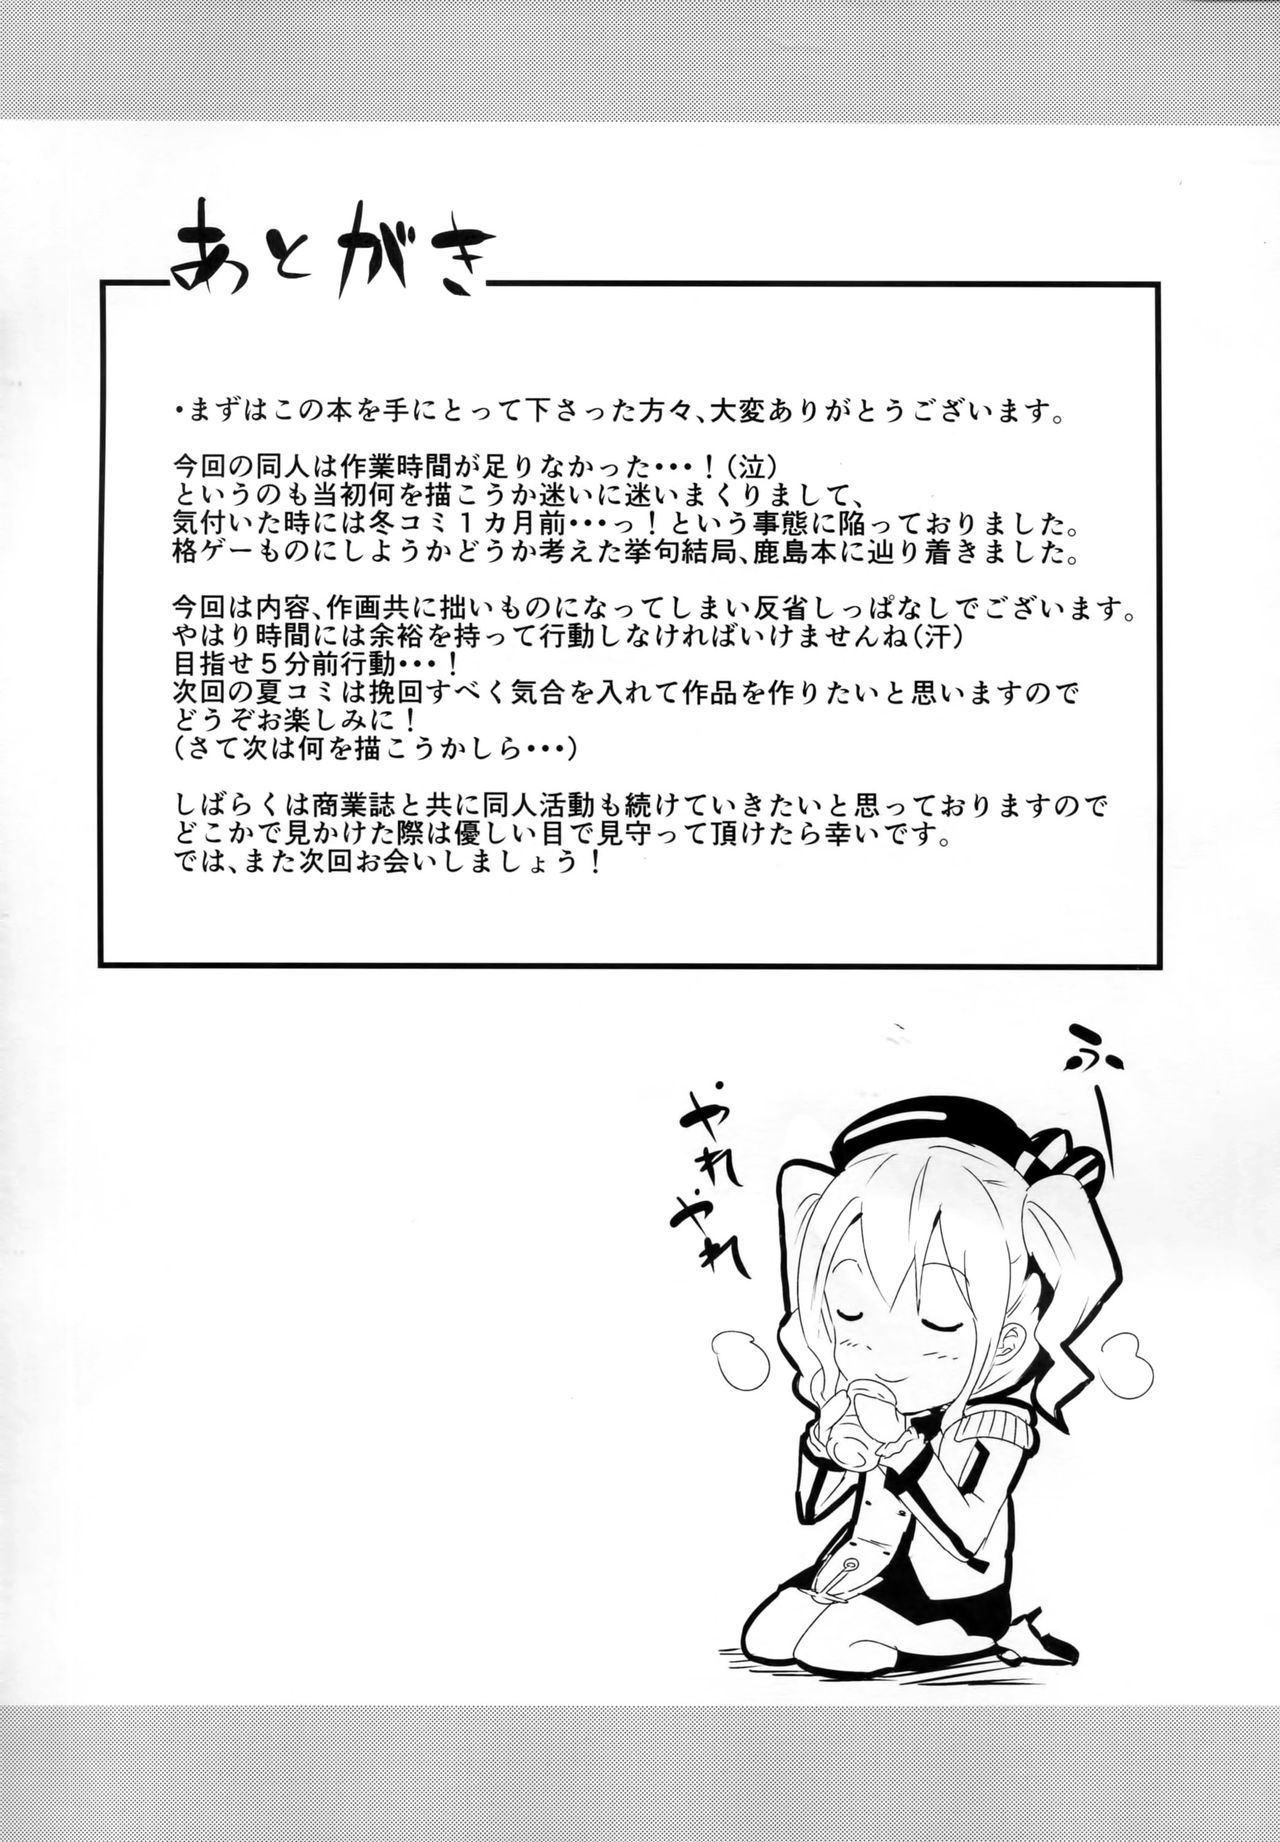 あとがき
・まずはこの本を手にとって下さった方々、大変ありがとうございます。
今回の同人は作業時間が足りなかった・・・！（泣）
というのも当初何を描こうか迷いに迷いまくりまして、
気付いた時には冬コミ１カ月前・・・っ！という事態に陥っておりました。
格ゲーものにしようかどうか考えた挙句結局、鹿島本に辿り着きました。
今回は内容、作画共に拙いものになってしまい反省しっぱなしでございます。
やはり時間には余裕を持って行動しなければいけませんね（汗）
目指せ５分前行動・・・！
次回の夏コミは挽回すべく気合を入れて作品を作りたいと思いますので
どうぞお楽しみに！
（さて次は何を描こうかしら・・・）
しばらくは商業誌と共に同人活動も続けていきたいと思っておりますので
どこかで見かけた際は優しい目で見守って頂けたら幸いです。
では、また次回お会いしましょう！
ふー
やれ
やれ